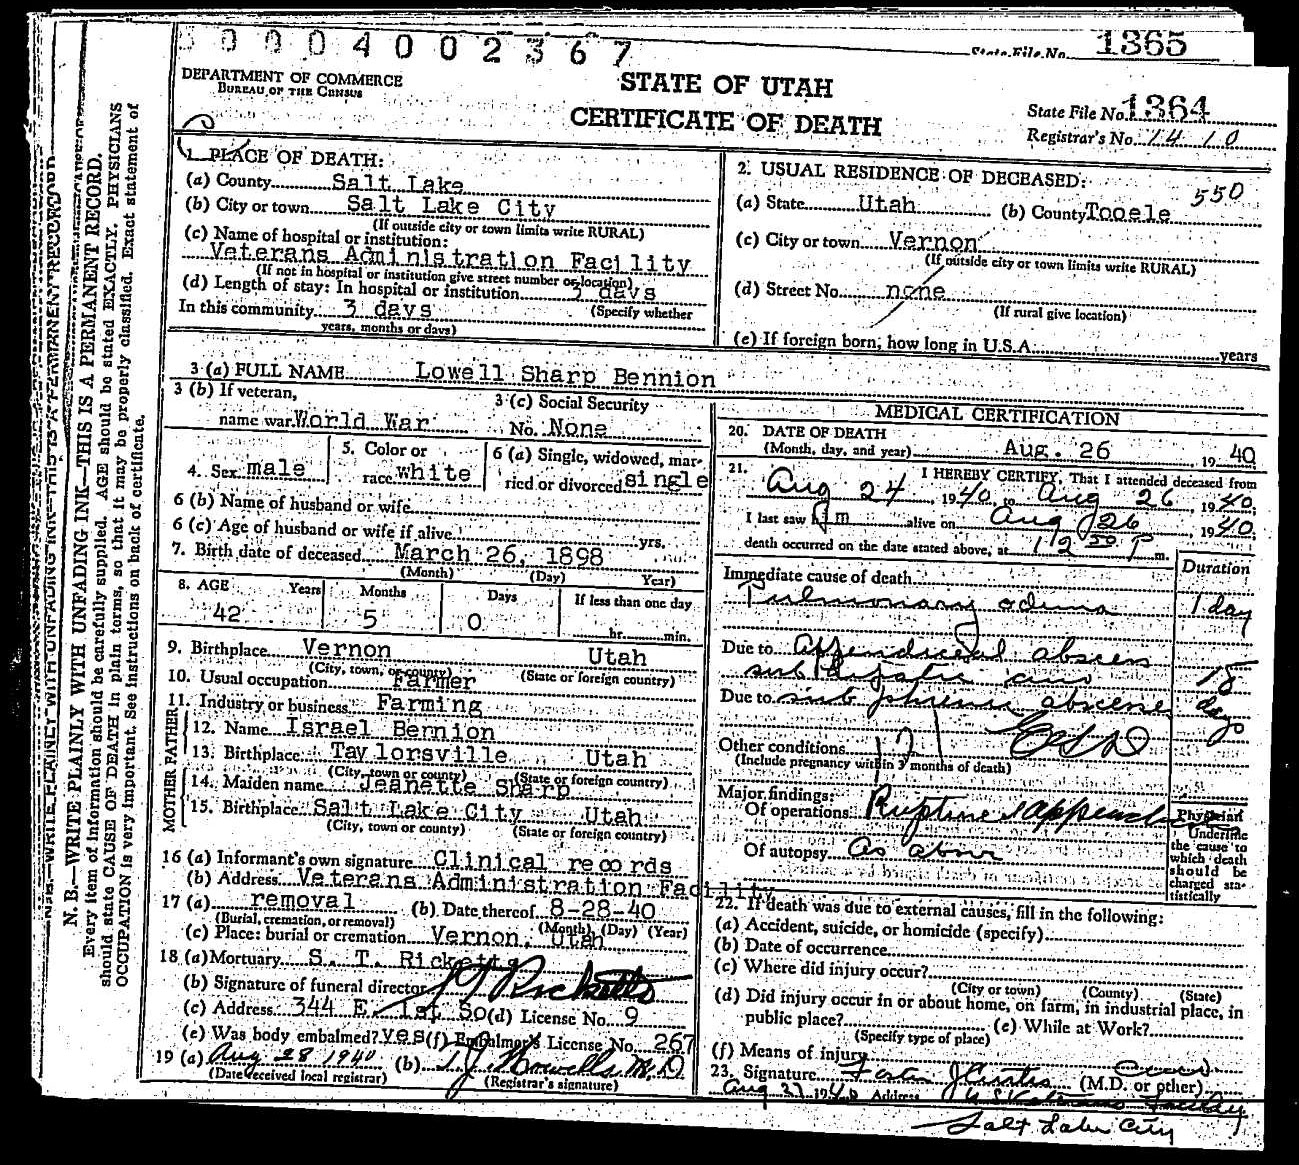 0 0 0 4 0 0 2 3 6 7
State File No. 1365
DEPARTMENT OF COMMERCE
BUREAU OF THE CENSUS
STATE OF UTAH
CERTIFICATE OF DEATH
State File No. 1364
Registrar's No. 14 10
N. B.—WRITE PLAINLY WITH UNFADING INK—THIS IS A PERMANENT RECORD.
Every item of information should be carefully supplied. AGE should be stated EXACTLY. PHYSICIANS
should state CAUSE OF DEATH in plain terms, so that it may be properly classified. Exact statement of
OCCUPATION is very important. See instructions on back of certificate.
1. PLACE OF DEATH:
(a) County Salt Lake
(b) City or town Salt Lake City
(If outside city or town limits write RURAL)
(c) Name of hospital or institution:
Veterans Administration Facility
(If not in hospital or institution give street number or location)
(d) Length of stay: In hospital or institution 3 days
In this community 3 days (Specify whether
years, months or days)
2. USUAL RESIDENCE OF DECEASED:
550
(a) State Utah (b) County Tooele
(c) City or town Vernon
(If outside city or town limits write RURAL)
(d) Street No. none
(If rural give location)
(e) If foreign born, how long in U.S.A. years
3 (a) FULL NAME Lowell Sharp Bennion
3 (b) If veteran,
name war World War
3 (c) Social Security
No. None
4. Sex male
5. Color or
race white
6 (a) Single, widowed, mar-
ried or divorced single
6 (b) Name of husband or wife
6 (c) Age of husband or wife if alive yrs.
7. Birth date of deceased March 26, 1898
(Month) (Day) Year)
8. AGE Years Months Days If less than one day
42 5 0 hr. min.
9. Birthplace Vernon Utah
(City, town, or county) (State or foreign country)
10. Usual occupation Farmer
11. Industry or business Farming
FATHER
12. Name Israel Bennion
13. Birthplace Taylorsville Utah
(City, town or county) (State or foreign country)
MOTHER
14. Maiden name Jeanette Sharp
15. Birthplace Salt Lake City Utah
(City, town or county) (State or foreign country)
16 (a) Informant's own signature Clinical records
(b) Address Veterans Administration Facility
17 (a) removal (b) Date thereof 8-28-40
(Burial, cremation, or removal) (Month) (Day) (Year)
(c) Place: burial or cremation Vernon, Utah
18 (a) Mortuary S. T. Ricketts
(b) Signature of funeral director Ricketts
(c) Address 344 E. 1st So (d) License No. 9
(e) Was body embalmed? yes (f) Embalmer's License No. 267
19 (a) Aug 28 1940 (b) M. D
(Date received local registrar) (Registrar's signature)
MEDICAL CERTIFICATION
20. DATE OF DEATH
(Month, day, and year) Aug. 26, 1940
21. I HEREBY CERTIFY, That I attended deceased from
Aug 24, 1940, to Aug 26, 1940,
I last saw him alive on Aug 26, 1940,
death occurred on the date stated above, at 12 50 P m.
Duration
Immediate cause of death
Pulmonary edema 1 day
Due to Appendiceal abscess
18
Due to sub phrenic abscess days
Other conditions 121
(Include pregnancy within 3 months of death)
Major findings:
Of operations Ruptured appendix
Of autopsy As above
Physician
Underline
the cause to
which death
should be
charged sta-
tistically
22. If death was due to external causes, fill in the following:
(a) Accident, suicide, or homicide (specify)
(b) Date of occurrence
(c) Where did injury occur?
(City or town) (County) (State)
(d) Did injury occur in or about home, on farm, in industrial place, in
public place? (e) While at Work?
(Specify type of place)
(f) Means of injury
23. Signature Foster J Curtis (M.D. or other)
Aug 27 1940 Address U S Veterans Facility
Salt Lake City